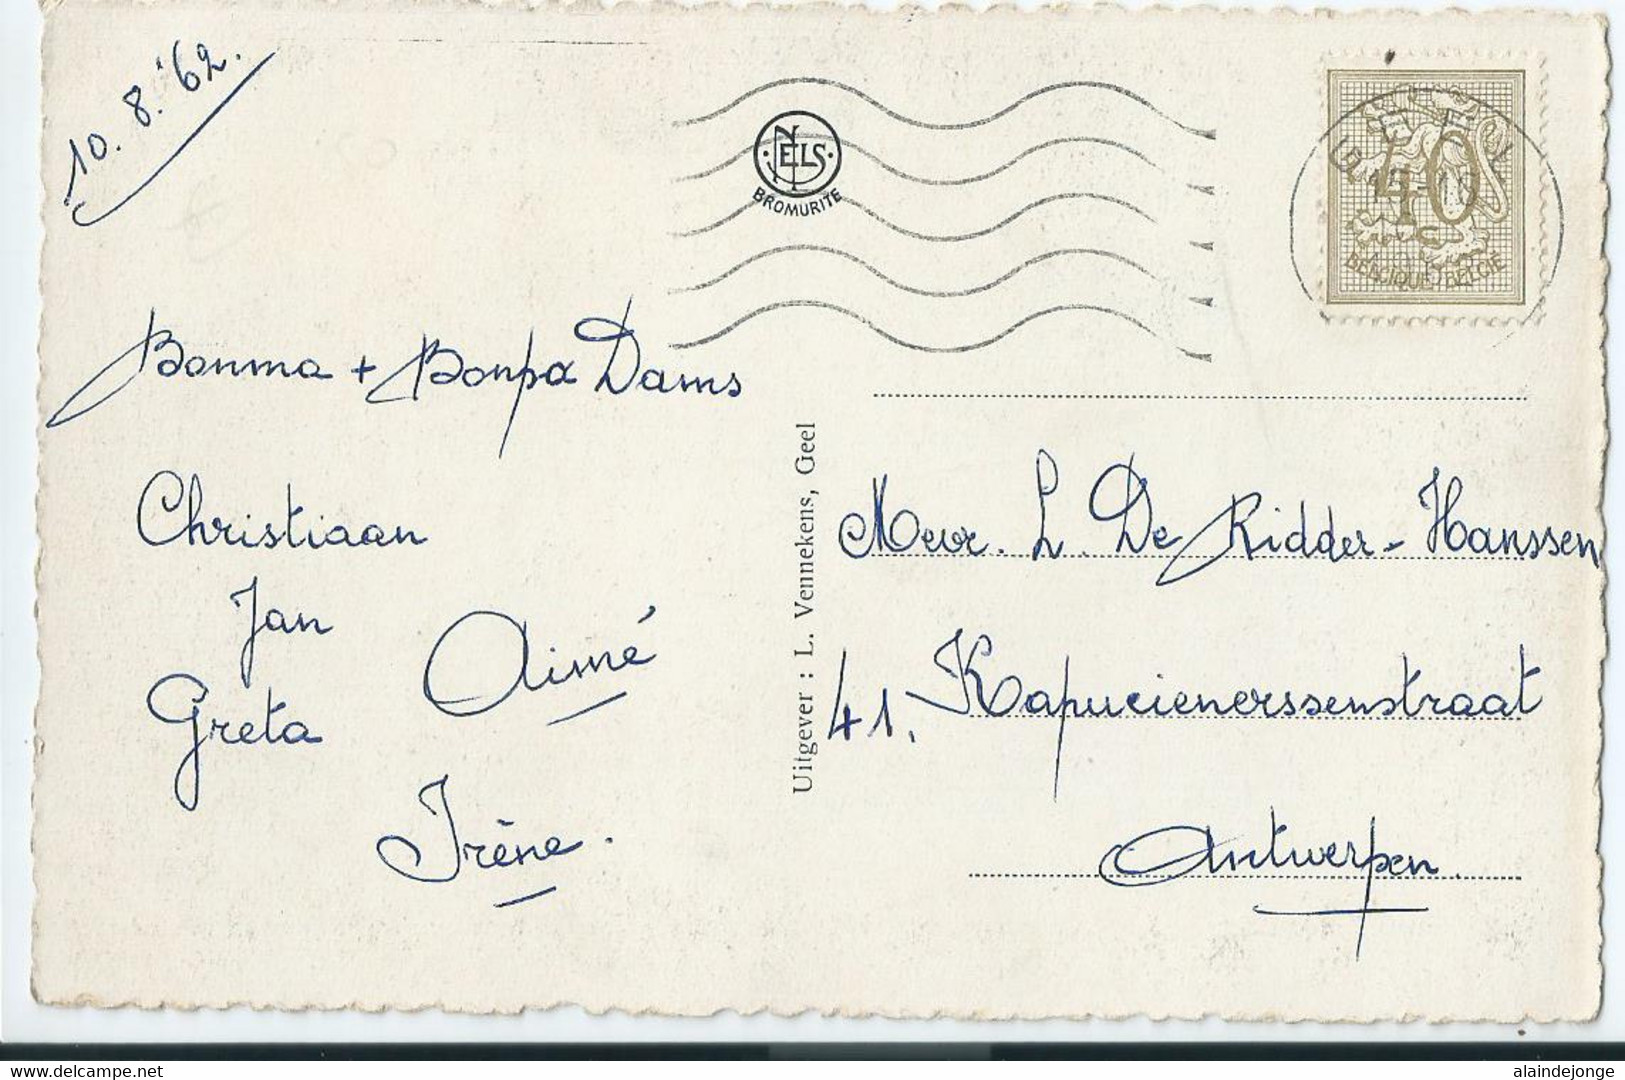 10. 8. '62.
NELS
BROMURITE
40
BELGIQUE-BELGIË
Bonma + Bonpa Dams
Christiaan
Jan
Aimé
Greta
Irène.
Uitgever : L. Vennekens, Geel
Mevr. L. De Ridder-Hanssen
41, Kapucienerssenstraat
Antwerpen.
alaindejonge